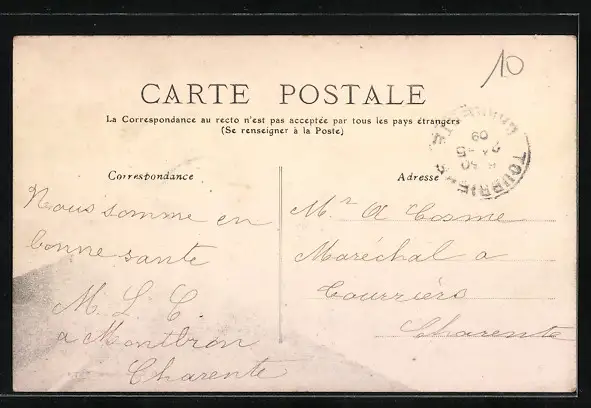 10
CARTE POSTALE
La Correspondance au recto n'est pas acceptée par tous les pays étrangers
(Se renseigner à la Poste)
TOURRIERS
CHARENTE
09
Correspondance
Adresse
Nous somme en
bonne sante
M. L. C.
a Montbron
Charente
Mr A Cosme
Maréchal a
Tourriérs
Charente